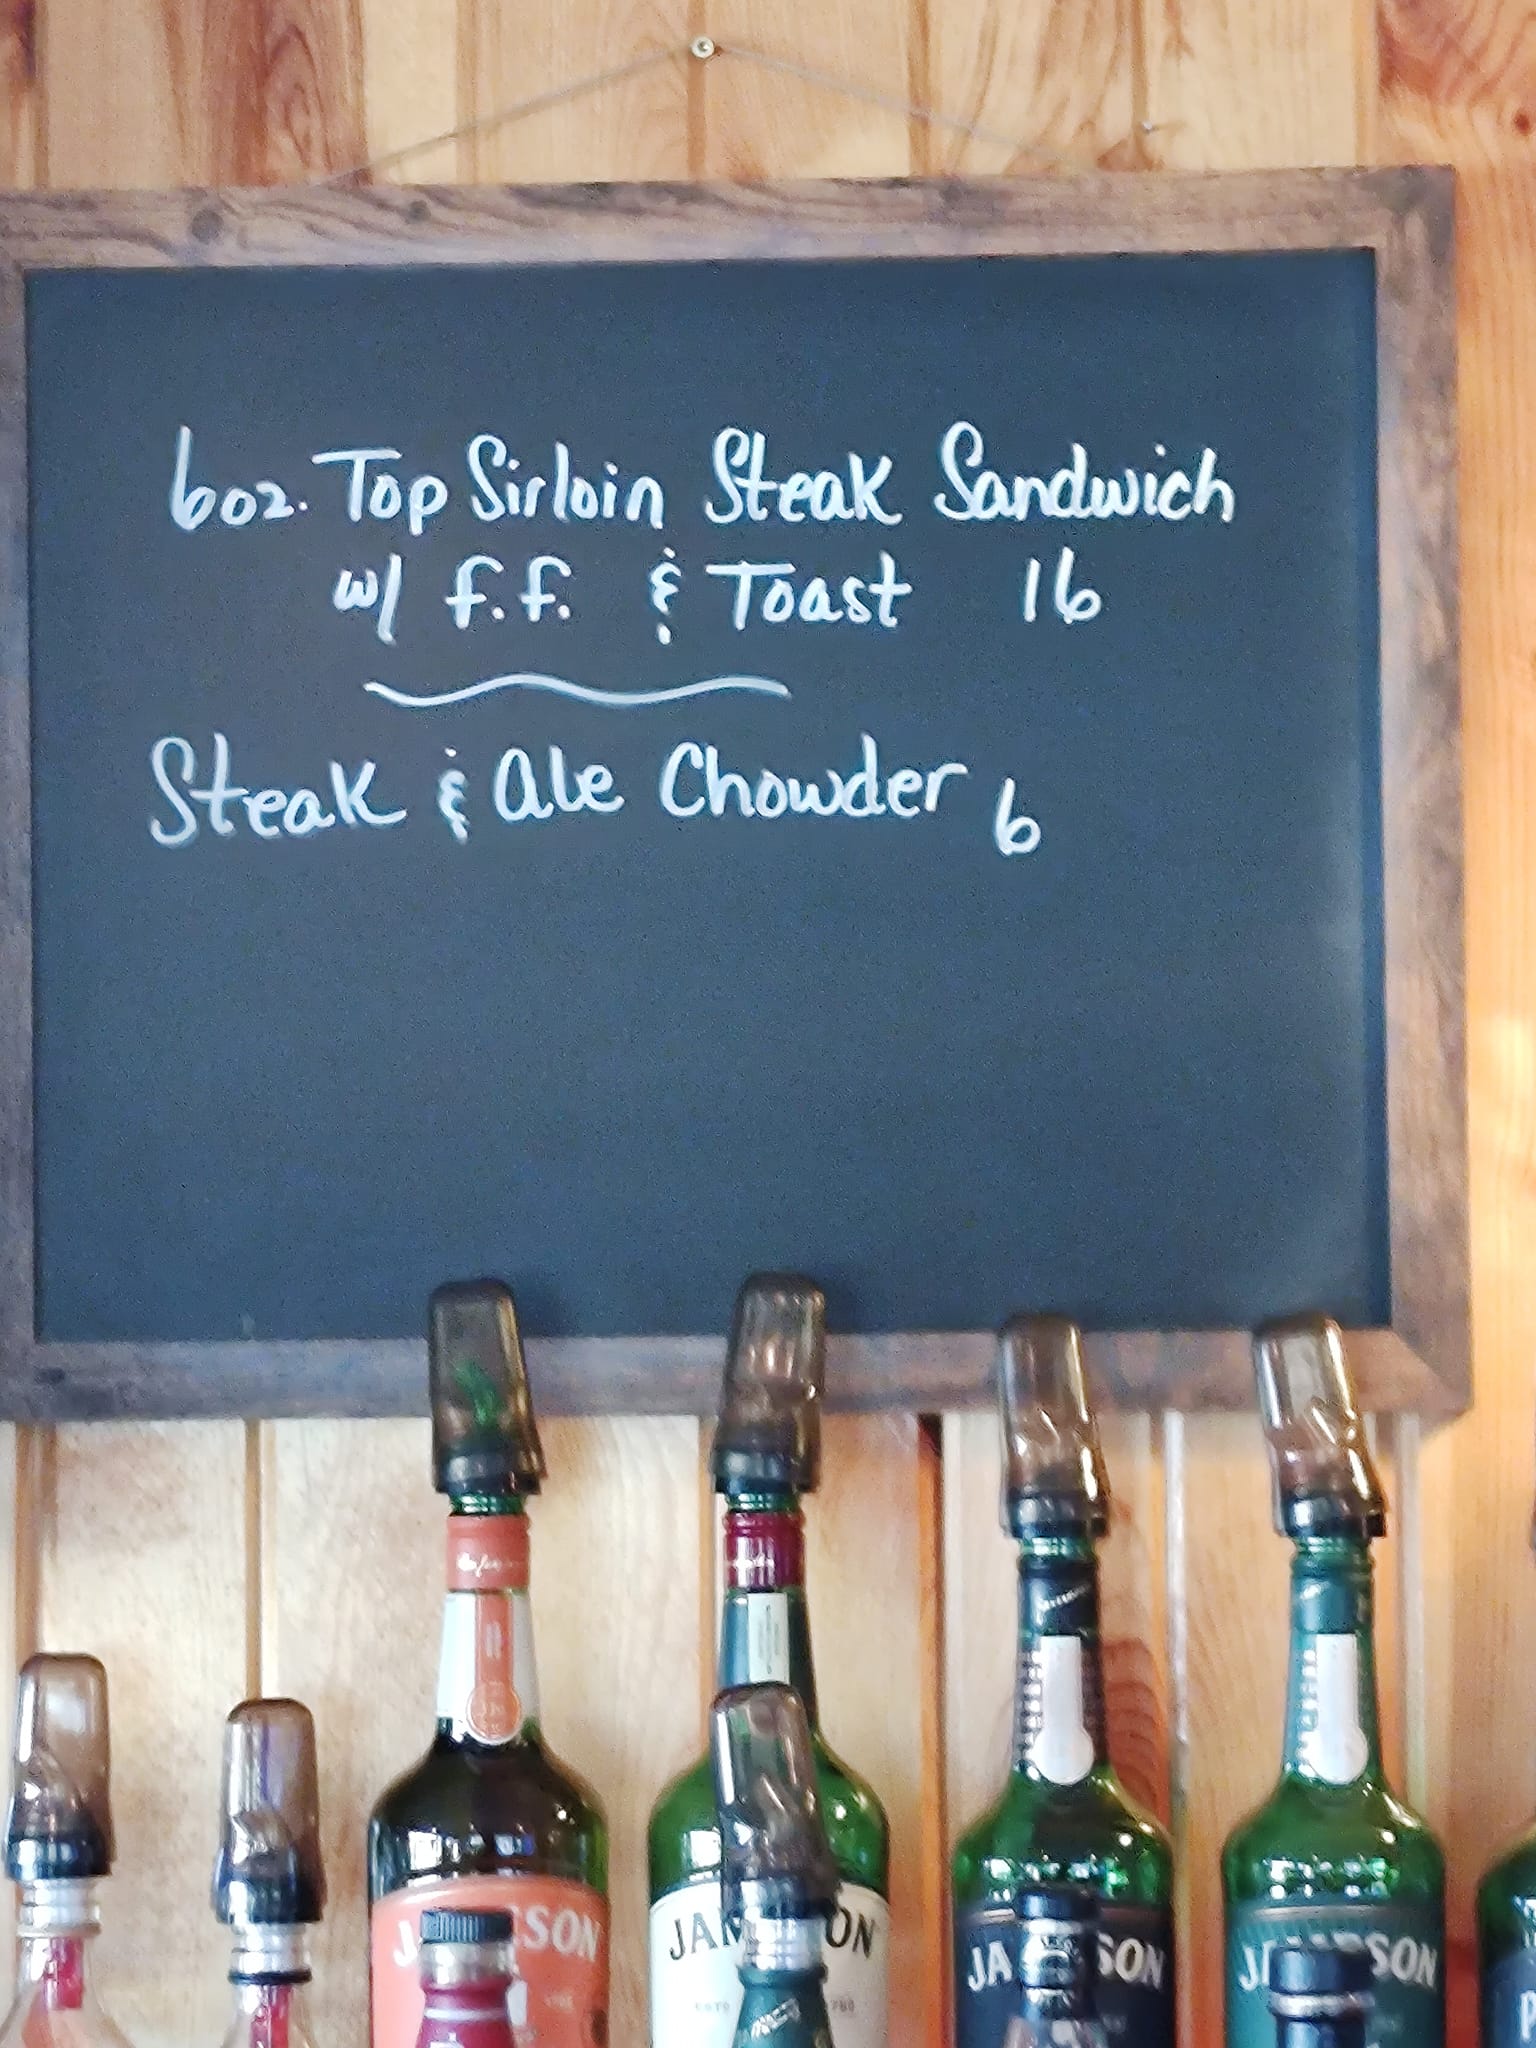 6oz. Top Sirloin Steak Sandwich
w/ f.f. & Toast 16
Steak & Ale Chowder 6
JAMESON
JAMESON
JAMESON
JAMESON